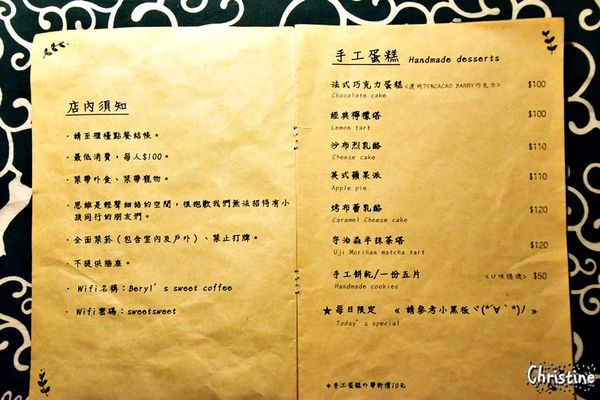 店內須知
· 請至櫃檯點餐結帳。
· 最低消費,每人$100。
· 禁帶外食、禁帶寵物。
· 思維是輕聲細語的空間,很抱歉我們無法招待有小
孩同行的朋友們。
· 全面禁菸(包含室內及戶外)、禁止打牌。
· 不提供插座。
· Wifi名稱:Beryl's sweet coffee
· Wifi密碼:sweetsweet
手工蛋糕 Handmade desserts
法式巧克力蛋糕<選用75%CACAO BARRY巧克力> $100
Chocolate cake
經典檸檬塔 $100
Lemon tart
沙布烈乳酪 $110
Cheese cake
英式蘋果派 $110
Apple pie
烤布蕾乳酪 $120
Caramel Cheese cake
宇治森半抹茶塔 $120
Uji Morihan matcha tart
手工餅乾/一份五片 <口味隨機> $50
Handmade cookies
★每日限定 《 請參考小黑板ヾ(*´∀`*)ﾉ 》
Today's special
*手工蛋糕外帶折價10元
Christine